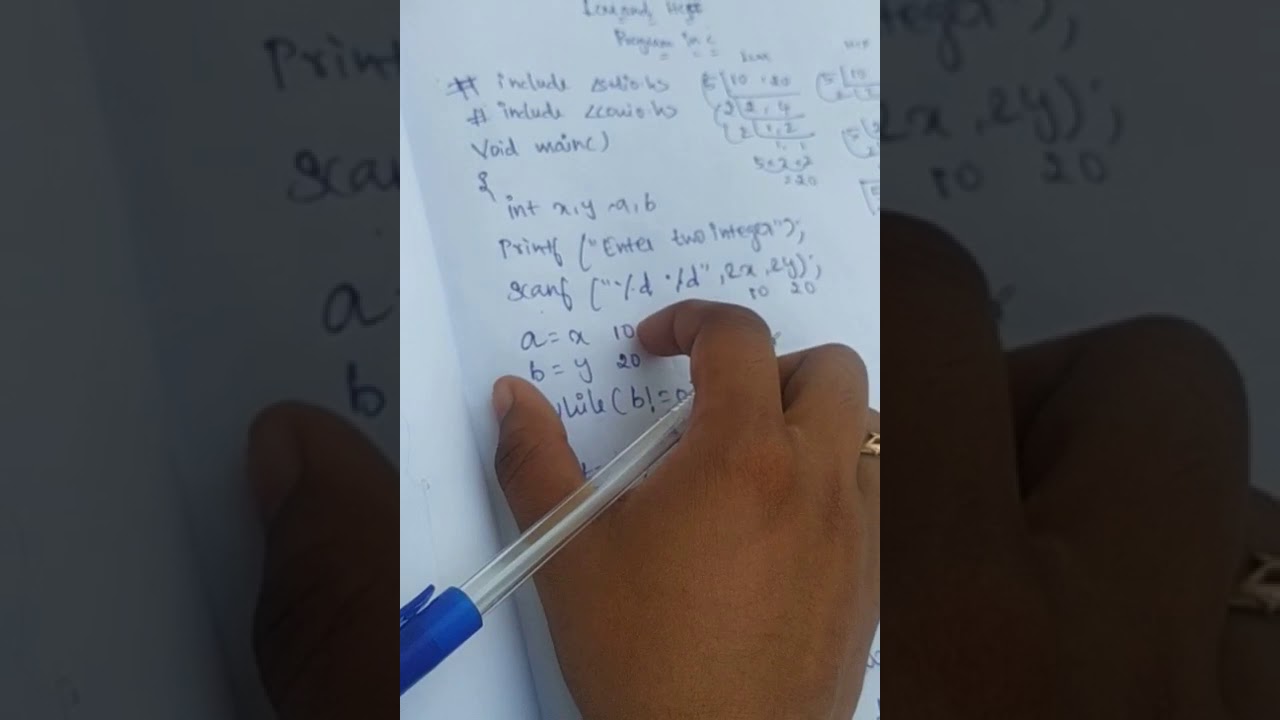 Lcm and Hcf
Program in c
# include <stdio.h>
# include <conio.h>
Void main()
{
int x, y, a, b
Printf ("Enter two integer");
Scanf ("%d %d", &x, &y);
10 20
a = x 10
b = y 20
while (b! = 0
Lcm
5 10, 20
2 2, 4
2 1, 2
1, 1
5 × 2 × 2
= 20
5 10